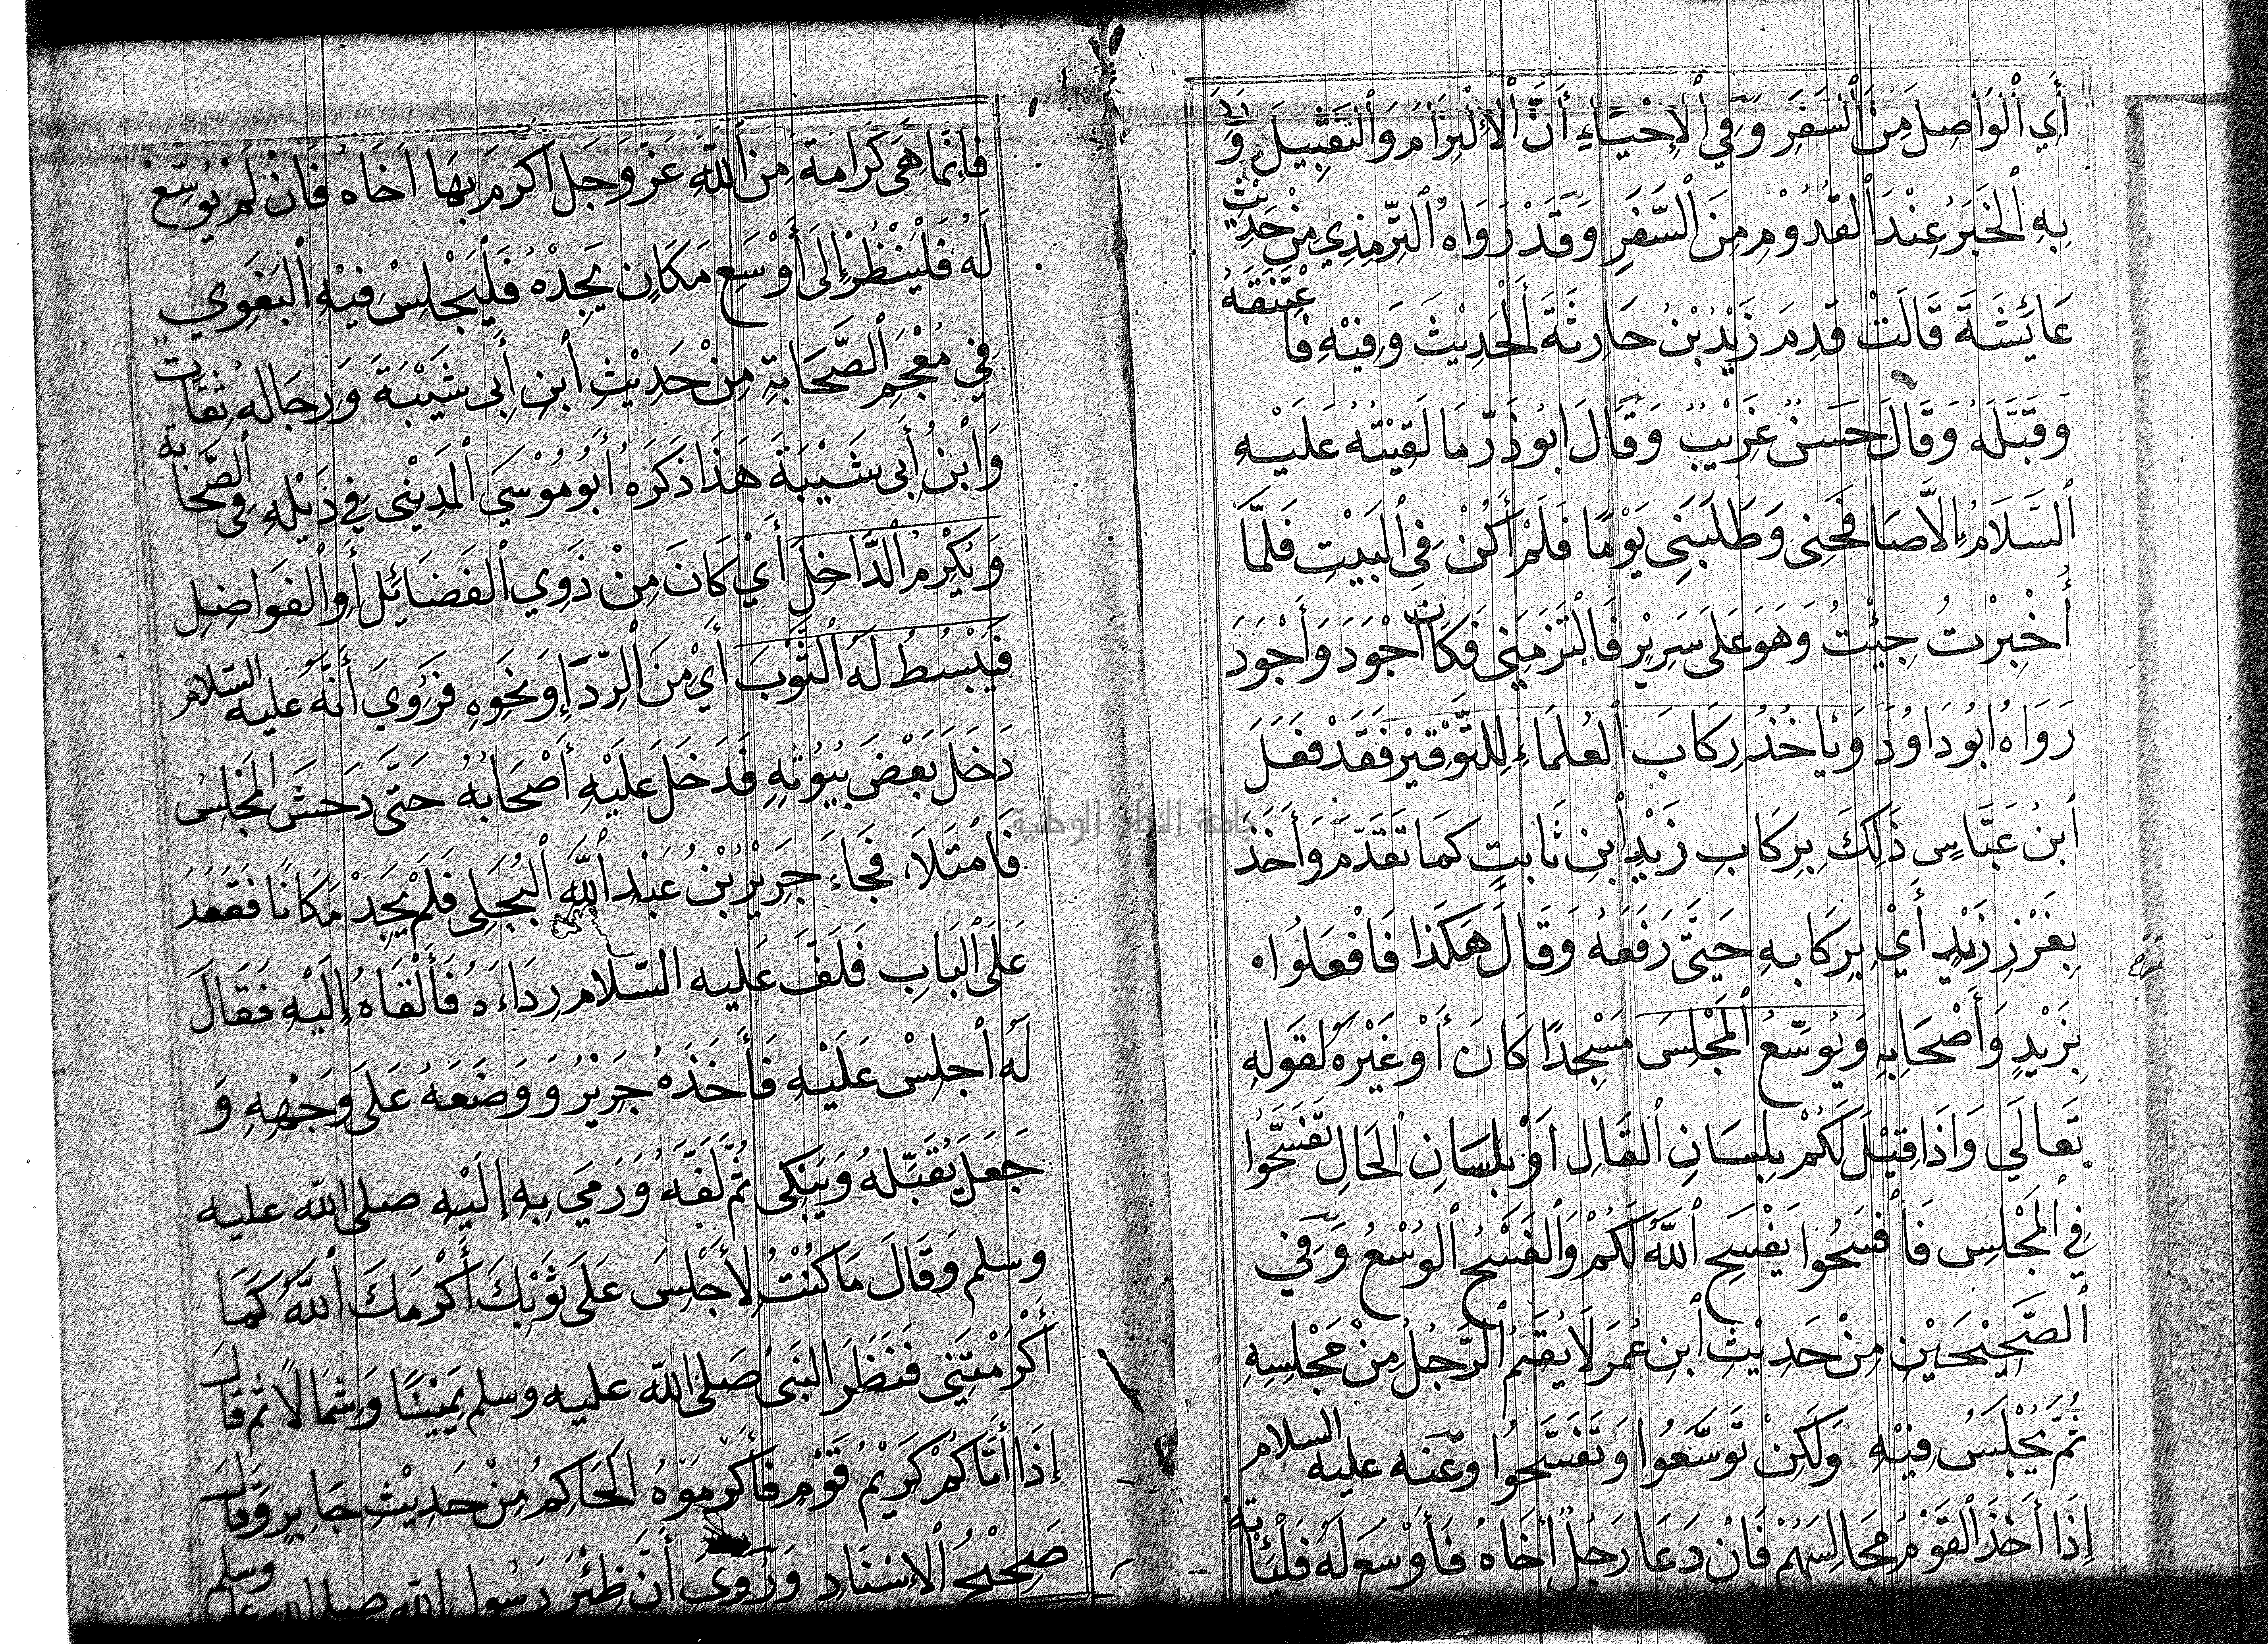 أَيِ ٱلْوَاصِلَ مِنَ ٱلسَّفَرِ وَفِي ٱلْإِحْيَاءِ أَنَّ ٱلْإِلْتِزَامَ وَٱلتَّقْبِيلَ وَرَدَ
بِهِ ٱلْخَبَرُ عِنْدَ ٱلْقُدُوْمِ مِنَ ٱلسَّفَرِ وَقَدْ رَوَاهُ ٱلتِّرْمِذِي مِنْ حَدِيْثِ
عَائِشَةَ قَالَتْ قَدِمَ زَيْدُ بْنُ حَارِثَةَ ٱلْحَدِيْثَ وَفِيْهِ فَاعْتَنَقَهُ
وَقَبَّلَهُ وَقَالَ حَسَنٌ غَرِيْبٌ وَقَالَ ابُو ذَرّ مَا لَقِيْتُهُ عَلَيْهِ
ٱلسَّلَامُ إِلَّا صَافَحَنِى وَطَلَبَنِي يَوْمًا فَلَمْ أَكُنْ فِي ٱلْبَيْتِ فَلَمَّا
أُخْبِرْتُ جِئْتُ وَهُوَ عَلَى سَرِيْرٍ فَالْتَزَمَنِي فَكَانَ أَجْوَدَ وَأَجْوَدَ
رَوَاهُ ابُو دَاوُدَ وَيَاخُذُ رِكَابَ ٱلْعُلَمَاءِ لِلتَّوْقِيْرِ فَقَدْ فَعَلَ
ٱبْنُ عَبَّاسٍ ذَلِكَ بِرِكَابِ زَيْدِ ٱبْنِ ثَابِتٍ كَمَا تَقَدَّمَ وَأَخَذَ
بِغَرْزِ زَيْدٍ أَيْ بِرِكَابِهِ حَتَّى رَفَعَهُ وَقَالَ هَكَذَا فَافْعَلُوا
بِزَيْدٍ وَأَصْحَابِهِ وَيُوَسِّعُ ٱلْمَجْلِسَ مَسْجِدًا كَانَ أَوْ غَيْرَهُ لِقَوْلِهِ
تَعَالَي وَاذَا قِيْلَ لَكُمْ بِلِسَانِ ٱلْقَالِ اَوْ بِلِسَانِ ٱلْحَالِ تَفَسَّحُوا
فِي ٱلْمَجْلِسِ فَافْسَحُوا يَفْسَحِ ٱللَّهُ لَكُمْ وَٱلْفَسْحُ ٱلْوُسْعُ وَفِي
ٱلصَّحِيْحَيْنِ مِنْ حَدِيْثِ ٱبْنِ عُمَرَ لَا يُقَمُ ٱلرَّجُلُ مِنْ مَجْلِسِهِ
ثُمَّ يُجْلَسُ فِيْهِ وَلَكِنْ تَوَسَّعُوا وَتَفَسَّحُوا وعَنه عليه السلام
إِذَا أَخَذَ ٱلْقَوْمُ مَجَالِسَهُمْ فَانْ دَعَا رَجُلٌ أَخَاهُ فَأَوْسَعَ لَهُ فَلْيَأْتِهِ
فَإِنَّمَا هِيَ كَرَامَةٌ مِنَ ٱللَّهِ عَزَّ وَجَلَ اكْرَمَ بِهَا اَخَاهُ فَانْ لَمْ يُوَسِّعْ
لَهُ فَلْيَنْظُرْ إِلَى أَوْسَعِ مَكَانٍ يَجِدْهُ فَلْيَجْلِسْ فِيْهِ ٱلْبَغَوِي
فِي مُعْجَمِ ٱلصَّحَابَةِ مِنْ حَدِيْثِ ٱبْنِ أَبِي شَيْبَةَ وَرِجَالُهُ ثِقَاتٌ
وَٱبْنُ أَبِي شَيْبَةَ هَذَا ذَكَرَهُ أَبُو مُوْسَي ٱلْمَدِيْنِي فِي ذَيْلِهِ فِي ٱلصَّحَابَة
وَيُكْرِمُ ٱلدَّاخِلَ أَيْ كَانَ مِنْ ذَوِي ٱلْفَضَائِلِ أَوِ ٱلْفَوَاضِلِ
فَيَبْسُطُ لَهُ ٱلثَّوْبَ أَيْ مِنَ ٱلرِّدَآءِ اوْ نَحْوِهِ فَرُوِيَ أَنَّهُ عَليه السّلام
دَخَلَ بَعْضَ بُيُوْتِهِ فَدَخَلَ عَلَيْهِ أَصْحَابُهُ حَتَّى دَحَسَ ٱلْمَجْلِسُ
فَامْتَلَأَ فَجَاءَ جَرِيْرُ بْنُ عَبْدِ ٱللَّهِ ٱلْبَجَلِي فَلَمْ يَجِدْ مَكَانًا فَقَعَدَ
عَلَى ٱلْبَابِ فَلَفَّ عَليه السّلام رِدَاءَهُ فَأَلْقَاهُ إِلَيْهِ فَقَالَ
لَهُ ٱجْلِسْ عَلَيْهِ فَأَخَذَهُ جَرِيْرٌ وَوَضَعَهُ عَلَى وَجْهِهِ وَ
جَعَلَ يُقَبِّلُهُ وَيَبْكِي ثُمَّ لَفَّهُ وَرَمَي بِهِ إلَيْهِ صلى الله عليه
وسلم وَقَالَ مَا كُنْتُ لِأَجْلِسَ عَلَى ثَوْبِكَ أَكْرَمَكَ ٱللَّهُ كَمَا
أَكْرَمْتَنِي فَنَظَرَ النَّبِيُّ صَلى الله عليه وسلم يَمِيْنًا وَشِمَالًا ثم قَالَ
إِذَا أَتَاكُمْ كَرِيْمُ قَوْمٍ فَأَكْرِمُوْهُ ٱلْحَاكِمُ مِنْ حَدِيْثِ جَابِرٍ وَقَالَ
صَحِيْحُ ٱلْإِسْنَادِ وَرُوِيَ أَنَّ ظِئْرَ رَسُول الله صلى الله عليه وسلم
جامعة النجاح الوطنية